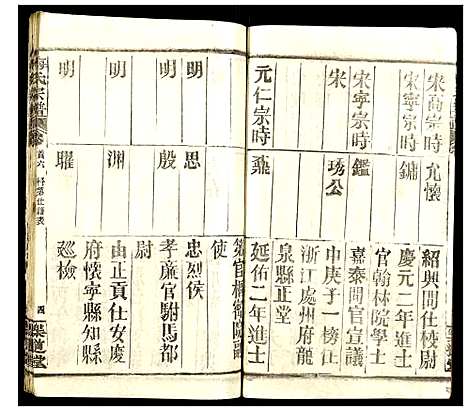 宋高宗時 允懷 紹興間仕校尉
宋寧宗時 鏞 慶元二年進士
官翰林院學士
宋寧宗時 鑑 嘉泰間官宣議
宋 琇公 中庚子一榜江
浙江處州府龍
泉縣正堂
元仁宗時 延佑二年進士
使
明 思 忠烈侯
明 殷 孝廉官駙馬都
尉
明 渊 由正貢仕安慶
府懷寧縣知縣
明 曜 巡檢
氏宗譜
首六 科第仕籍表
四
樂道堂